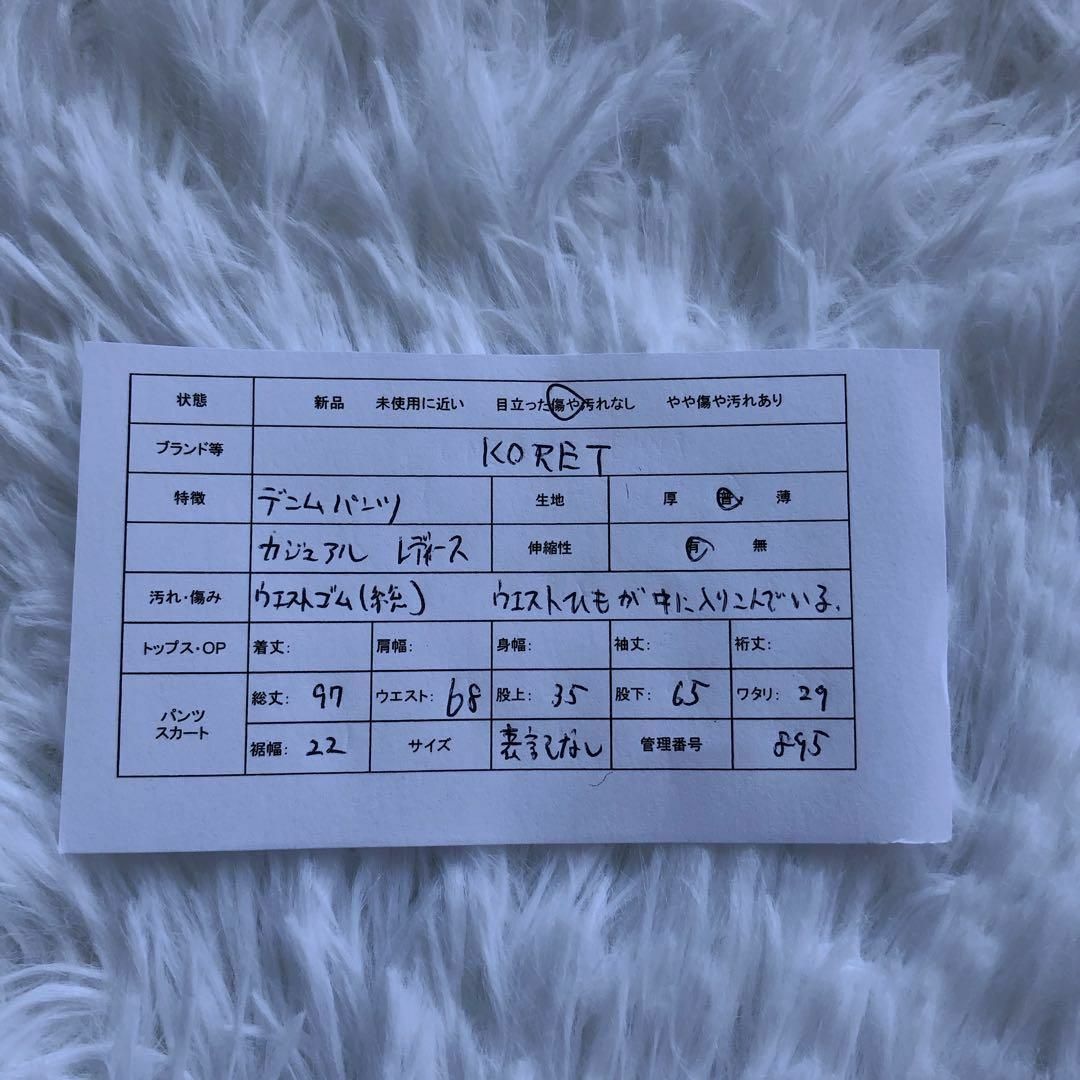 状態 新品 未使用に近い 目立った傷や汚れなし やや傷や汚れあり
ブランド等 KORET
特徴 デニムパンツ 生地 厚 普 薄
カジュアル レディース 伸縮性 有 無
汚れ・傷み ウエストゴム(総) ウエストひもが中に入りこんでいる。
トップス・OP 着丈: 肩幅: 身幅: 袖丈: 裄丈:
パンツ スカート 総丈: 97 ウエスト: 68 股上: 35 股下: 65 ワタリ: 29
裾幅: 22 サイズ 表記なし 管理番号 895